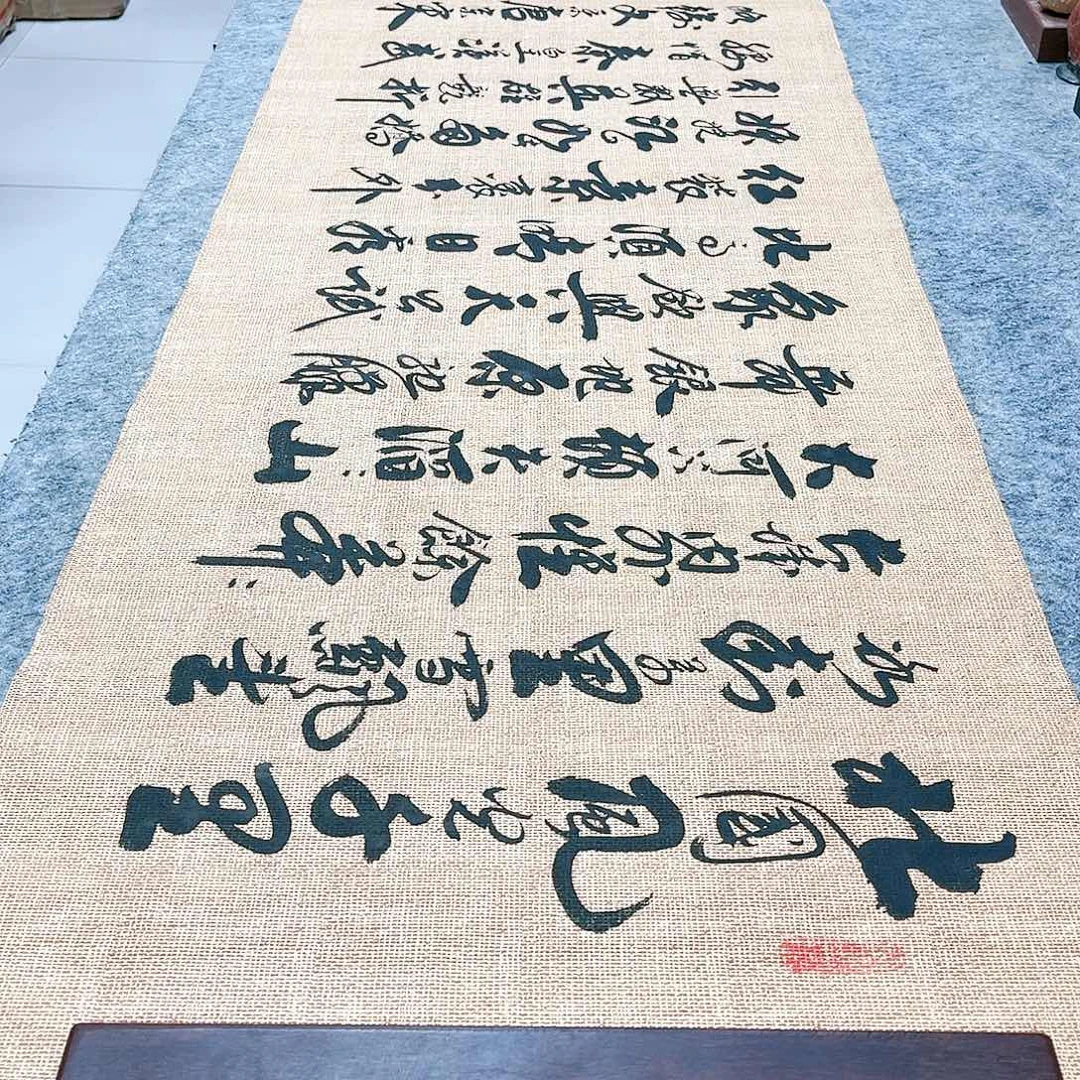 北國風光千里
冰封萬里雪飄望
長城內外惟餘莽莽
大河上下頓失滔滔山
舞銀蛇原馳蠟
象欲與天公試
比高須晴日看
紅裝素裹分外
妖嬈江山如此多嬌
引無數英雄競折
腰惜秦皇漢武
略輸文采唐宗宋